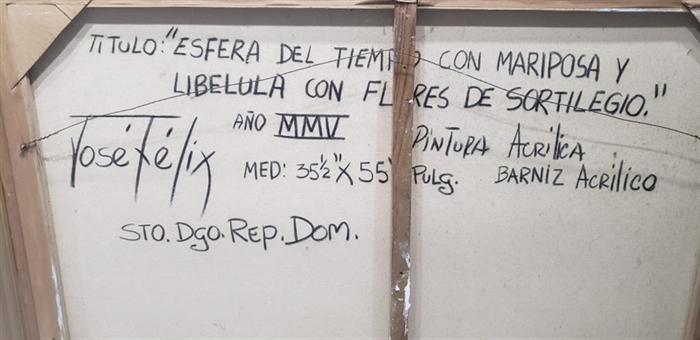 TITULO: "ESFERA DEL TIEMPO CON MARIPOSA Y
LIBELULA CON FLORES DE SORTILEGIO."
José Félix
AÑO MMV
PINTURA ACRÍLICA
MED: 35½" X 55" PULG.
BARNIZ ACRÍLICO
STO. Dgo. REP. DOM.